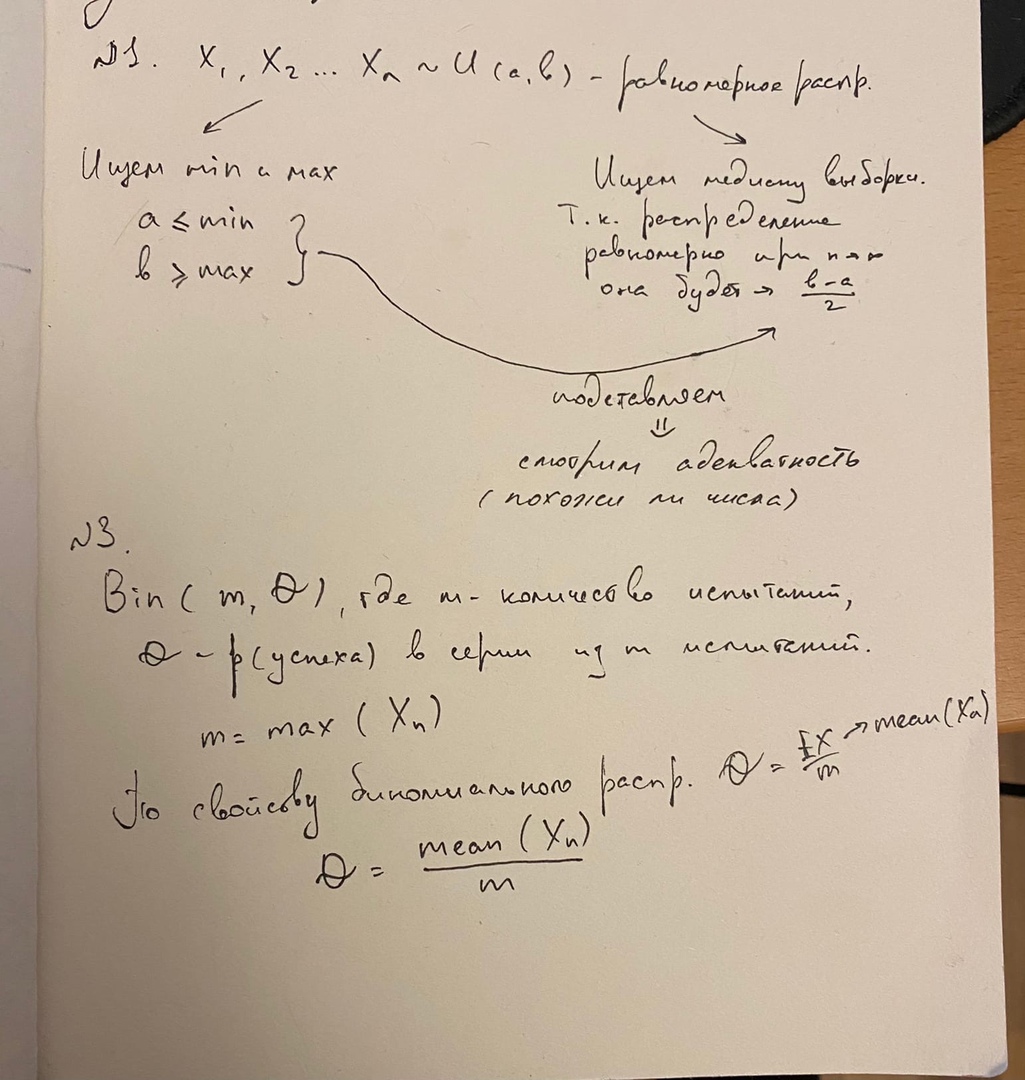 №1. X₁, X₂ ... Xₙ ~ U(a, b) - равномерное распр.
Ищем min и max
a ≤ min
b ⩾ max
Ищем медиану выборки.
Т.к. распределение
равномерно при n→∞
она будет → (b-a)/2
подставляем
смотрим адекватность
(похожи ли числа)
№3.
Bin(m, θ), где m - количество испытаний,
θ - p(успеха) в серии из m испытаний.
m = max(Xₙ)
По свойству биномиального распр. θ = EX/m → mean(Xₙ)
θ = mean(Xₙ)/m